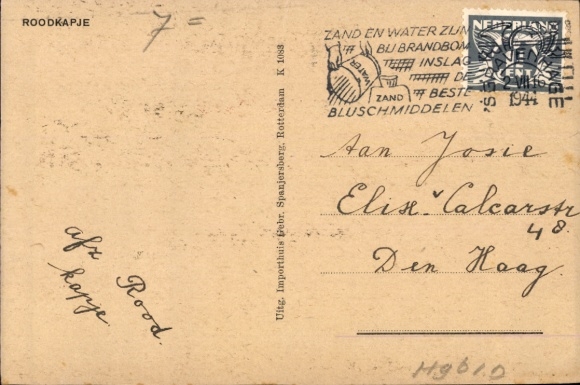 ROODKAPJE
7=
ZAND EN WATER ZIJN
BIJ BRANDBOM
INSLAG
DE
BESTE
BLUSCHMIDDELEN
WATER
ZAND
NEDERLAND
'S GRAVENHAGE
2 VII
1944
K 1083
Uitg. Importhuis Gebr. Spanjersberg, Rotterdam
Aan Josie
Elis. v Calcarstr
48.
Den Haag.
afz Rood
kapje